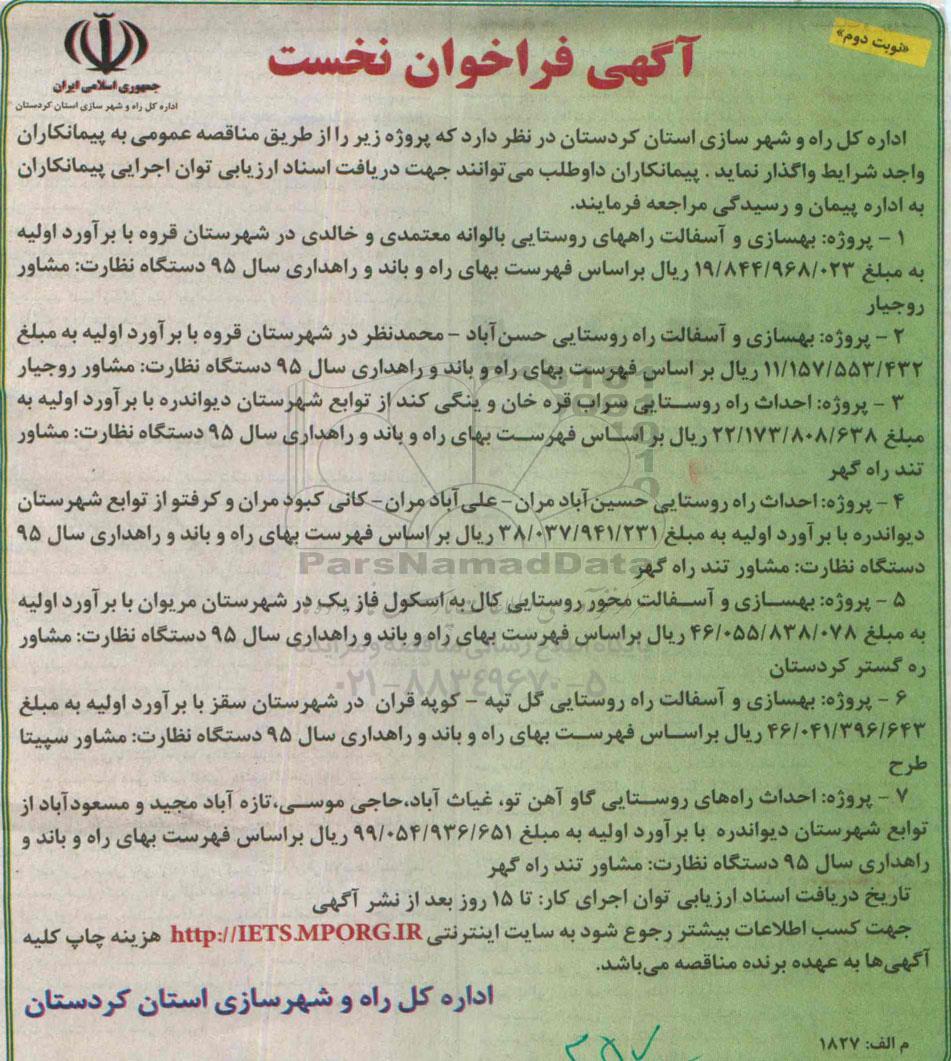 «نوبت دوم»
آگهی فراخوان نخست
جمهوری اسلامی ایران
اداره کل راه و شهر سازی استان کردستان
اداره کل راه و شهر سازی استان کردستان در نظر دارد که پروژه زیر را از طریق مناقصه عمومی به پیمانکاران
واجد شرایط واگذار نماید . پیمانکاران داوطلب می توانند جهت دریافت اسناد ارزیابی توان اجرایی پیمانکاران
به اداره پیمان و رسیدگی مراجعه فرمایند.
۱ - پروژه: بهسازی و آسفالت راههای روستایی بالوانه معتمدی و خالدی در شهرستان قروه با برآورد اولیه
به مبلغ ۱۹/۸۴۴/۹۶۸/۰۲۳ ریال براساس فهرست بهای راه و باند و راهداری سال ۹۵ دستگاه نظارت: مشاور
روجیار
۲ - پروژه: بهسازی و آسفالت راه روستایی حسن آباد - محمدنظر در شهرستان قروه با برآورد اولیه به مبلغ
۱۱/۱۵۷/۵۵۳/۴۳۲ ریال بر اساس فهرست بهای راه و باند و راهداری سال ۹۵ دستگاه نظارت: مشاور روجیار
۳ - پروژه: احداث راه روستایی سراب قره خان و ینگی کند از توابع شهرستان دیواندره با برآورد اولیه به
مبلغ ۲۲/۱۷۳/۸۰۸/۶۳۸ ریال بر اساس فهرست بهای راه و باند و راهداری سال ۹۵ دستگاه نظارت: مشاور
تند راه گهر
۴ - پروژه: احداث راه روستایی حسین آباد مران- علی آباد مران- کانی کبود مران و کرفتو از توابع شهرستان
دیواندره با برآورد اولیه به مبلغ ۳۸/۰۳۷/۹۴۱/۲۳۱ ریال بر اساس فهرست بهای راه و باند و راهداری سال ۹۵
دستگاه نظارت: مشاور تند راه گهر
ParsNamadData
۵ - پروژه: بهسازی و آسفالت محور روستایی کال به اسکول فاز یک در شهرستان مریوان با برآورد اولیه
به مبلغ ۴۶/۰۵۵/۸۳۸/۰۷۸ ریال براساس فهرست بهای راه و باند و راهداری سال ۹۵ دستگاه نظارت: مشاور
پایگاه اطلاع رسانی مناقصه و مزایده
ره گستر کردستان
۰۲۱-۸۸۳۴۹۶۷۰-۵
۶ - پروژه: بهسازی و آسفالت راه روستایی گل تپه - کوپه قران در شهرستان سقز با برآورد اولیه به مبلغ
۴۶/۰۴۱/۳۹۶/۶۴۳ ریال براساس فهرست بهای راه و باند و راهداری سال ۹۵ دستگاه نظارت: مشاور سپیتا
طرح
۷ - پروژه: احداث راه‌های روستایی گاو آهن تو، غیاث آباد،حاجی موسی،تازه آباد مجید و مسعودآباد از
توابع شهرستان دیواندره با برآورد اولیه به مبلغ ۹۹/۰۵۴/۹۳۶/۶۵۱ ریال براساس فهرست بهای راه و باند و
راهداری سال ۹۵ دستگاه نظارت: مشاور تند راه گهر
تاریخ دریافت اسناد ارزیابی توان اجرای کار: تا ۱۵ روز بعد از نشر آگهی
جهت کسب اطلاعات بیشتر رجوع شود به سایت اینترنتی http://IETS.MPORG.IR هزینه چاپ کلیه
آگهی‌ها به عهده برنده مناقصه می‌باشد.
اداره کل راه و شهرسازی استان کردستان
م الف: ۱۸۲۷